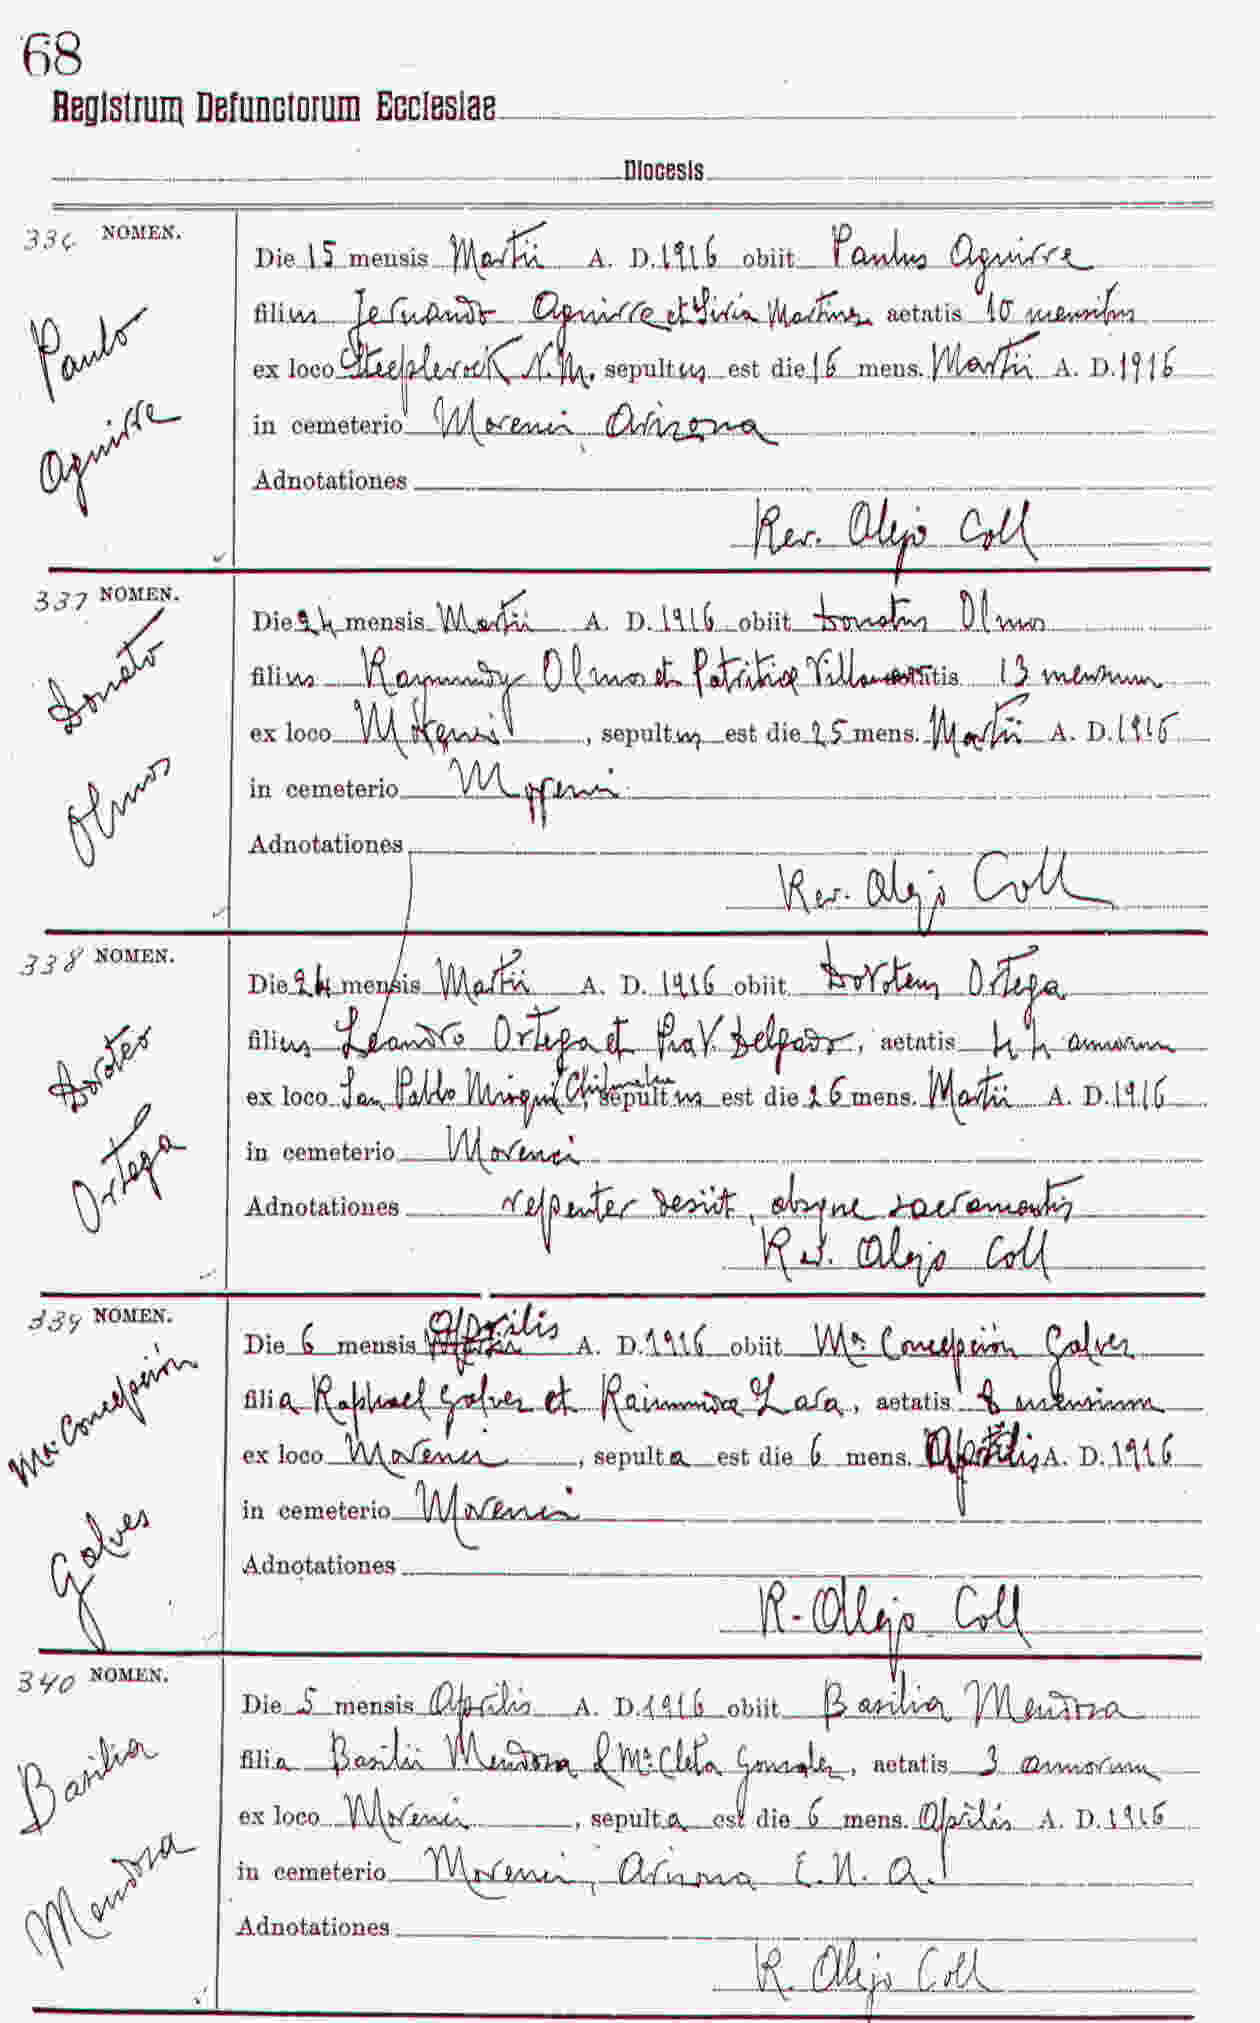 68
Registrum Defunctorum Ecclesiae
Diocesis
336 NOMEN.
Paulo
Aguirre
Die 15 mensis Martii A. D. 1916 obiit Paulus Aguirre
filius Fernando Aguirre et Liria Martinez aetatis 10 mensibus
ex loco Steeplerock N.M. sepultus est die 16 mens. Martii A. D. 1916
in cemeterio Morenci, Arizona
Adnotationes
Rev. Alejo Coll
337 NOMEN.
Donato
Olmos
Die 24 mensis Martii A. D. 1916 obiit Donatus Olmos
filius Raymundy Olmos et Patritiæ aetatis 13 mensium
ex loco Morenci, sepultus est die 25 mens. Martii A. D. 1916
in cemeterio Morenci
Adnotationes
Rev. Alejo Coll
338 NOMEN.
Doroteo
Ortega
Die 24 mensis Martii A. D. 1916 obiit Doroteus Ortega
filius Leandro Ortega et V. Delgado, aetatis 44 annorum
ex loco San Pablo Mioqui Chihuahua, sepultus est die 26 mens. Martii A. D. 1916
in cemeterio Morenci
Adnotationes repenter desiit, absque sacramentis
Rev. Alejo Coll
339 NOMEN.
Ma. Concepción
Galves
Die 6 mensis Aprilis A. D. 1916 obiit Ma. Concepción Galves
filia Raphael Galvez et Raimunda Lara, aetatis 8 mensium
ex loco Morenci, sepulta est die 6 mens. Aprilis A. D. 1916
in cemeterio Morenci
Adnotationes
R. Alejo Coll
340 NOMEN.
Basilia
Mendoza
Die 5 mensis Aprilis A. D. 1916 obiit Basilia Mendoza
filia Basilii Mendoza & Ma. Cleta Gonzalez, aetatis 3 annorum
ex loco Morenci, sepulta est die 6 mens. Aprilis A. D. 1916
in cemeterio Morenci, Arizona E. U. A.
Adnotationes
R. Alejo Coll